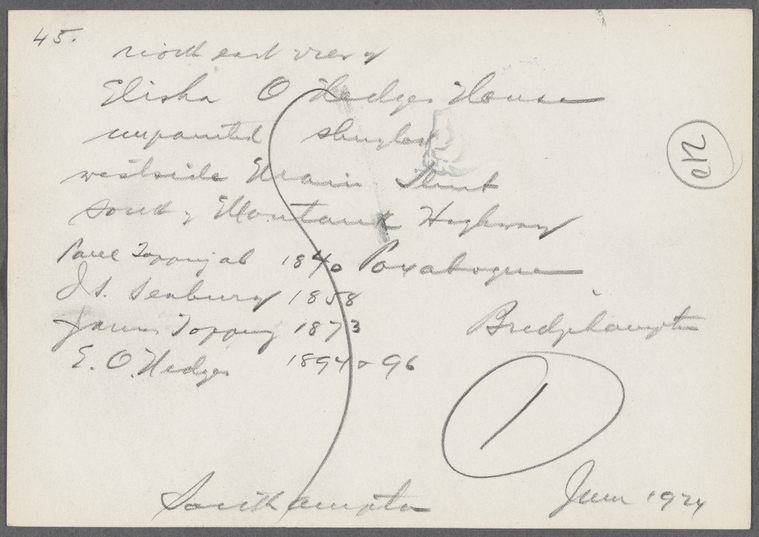 45.
north east view of
Elisha O Hedges House
unpainted shingled
westside Main Street
south of Montauk Highway
Paul Topping 1840 Poxabogue
J. S. Seabury 1858
James Topping 1873
Bridgehampton
E. O. Hedges 1894 96
1
Southampton
June 1924